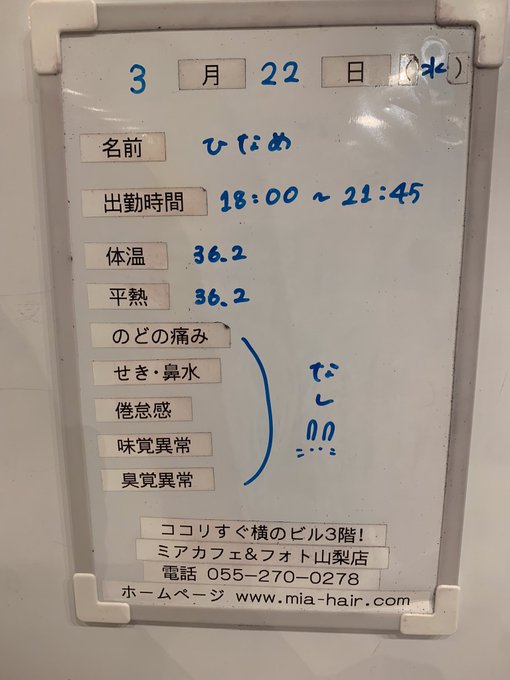 3 月 22 日 (水)
名前 ひなめ
出勤時間 18:00 ~ 21:45
体温 36.2
平熱 36.2
のどの痛み
せき・鼻水
倦怠感
味覚異常
臭覚異常
なし
ココリすぐ横のビル3階!
ミアカフェ&フォト山梨店
電話 055-270-0278
ホームページ www.mia-hair.com